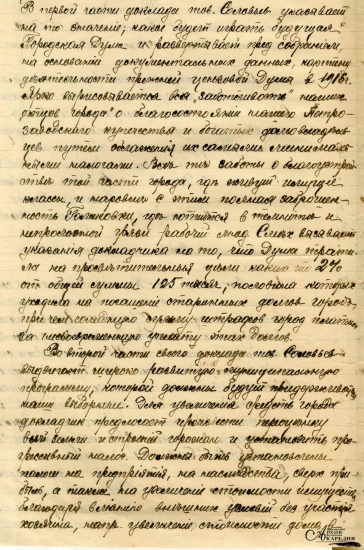 В первой части доклада тов. Соловьев указывает
на то значение, какое будет играть будущая
Городская Дума и развертывает пред собранием,
на основании документальных данных, картину
деятельности прежней цензовой Думы в 1916 г.
Ярко вырисовывается вся „заботливость" наших
„отцов города" о благосостоянии нашего Петро-
заводского купечества и богатых домовладель
цев путем обложения их самыми минималь
ными налогами. Все эти заботы о благоустрой
ствах той части города, где живут имущие
классы, и наровне с этим полная заброшен
ность Голиковки, где ютится в темноте и
непросветной грязи рабочий люд. Смех вызывают
указания докладчика на то, что Дума трати
ла на просветительные цели каких то 2%
от общей суммы 125 тысяч, половина которых
уходила на погашение старинных долгов города,
при чем солидную сумму штрафов город платил
за несвоевременную уплату этих долгов.
Во второй части своего доклада тов. Соловьев
выдвигает широко развитую муниципальную
программу, которой должны будут придерживаться
наши выборные. Для увеличения средств города
докладчик предлагает произвести переоценку
всей земли и строений горожан и установить про-
грессивный налог. Должны быть установлены
налоги на предприятия, на наследства, сверх при-
были, а также на увеличение стоимости имуществ
благодаря внешних условий без участия
хозяина, напр. увеличение стоимости домов, в
Архив
Карелии